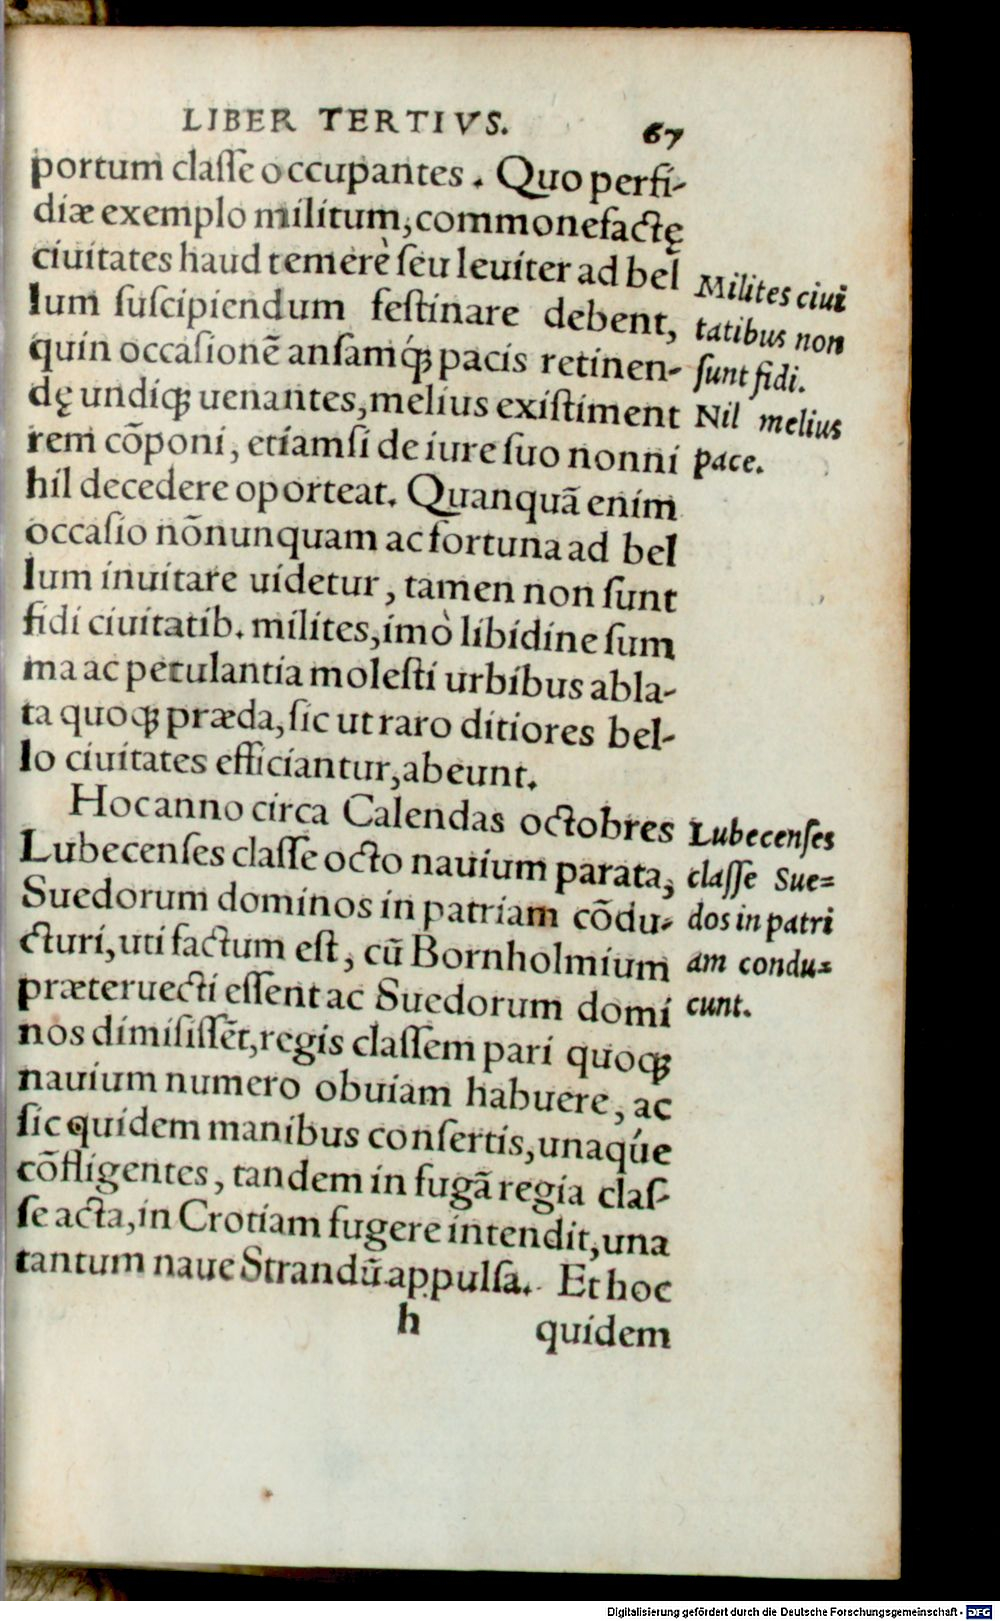 LIBER TERTIVS. 67
portum claſſe occupantes. Quo perfi-
diæ exemplo militum, commonefactę
ciuitates haud temerè ſeu leuiter ad bel
lum ſuſcipiendum feſtinare debent,
quin occaſionẽ anſamq́ꝫ pacis retinen-
dę undiqꝫ uenantes, melius exiſtiment
rem cõponi, etiamſi de iure ſuo nonni
hil decedere oporteat. Quanquã enim
occaſio nõnunquam ac fortuna ad bel
lum inuitare uidetur, tamen non ſunt
fidi ciuitatib. milites, imò libidine ſum
ma ac petulantia moleſti urbibus abla-
ta quoqꝫ præda, ſic ut raro ditiores bel-
lo ciuitates efficiantur, abeunt.
Milites ciui
tatibus non
ſunt fidi.
Nil melius
pace.
Hoc anno circa Calendas octobres
Lubecenſes claſſe octo nauium parata,
Suedorum dominos in patriam cõdu-
cturi, uti factum eſt, cũ Bornholmium
præteruecti eſſent ac Suedorum domi
nos dimiſiſſẽt, regis claſſem pari quoqꝫ
nauium numero obuiam habuere, ac
ſic quidem manibus conſertis, unaqúe
cõfligentes, tandem in fugã regia claſ-
ſe acta, in Crotiam fugere intendit, una
tantum naue Strandũ appulſa. Et hoc
Lubecenſes
claſſe Sue=
dos in patri
am condu=
cunt.
h quidem
Digitalisierung gefördert durch die Deutsche Forschungsgemeinschaft - DFG